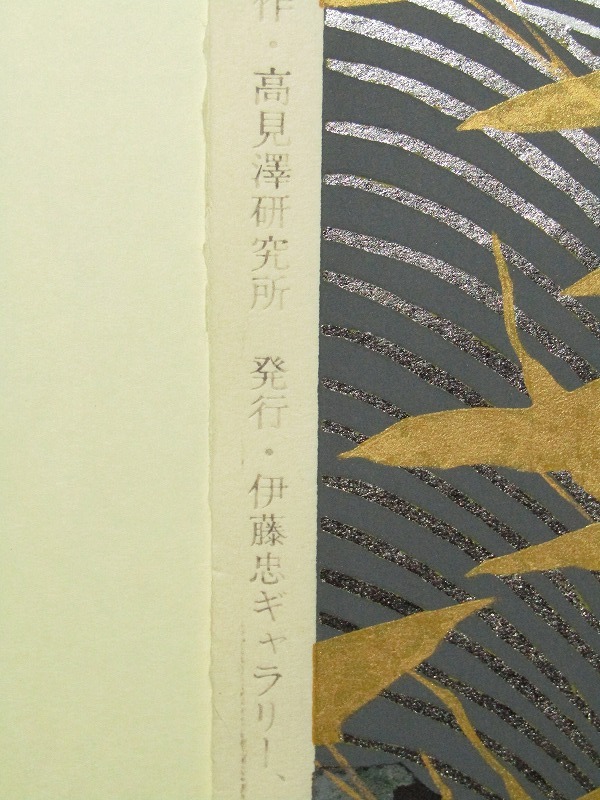 作・高見澤研究所　発行・伊藤忠ギャラリー、